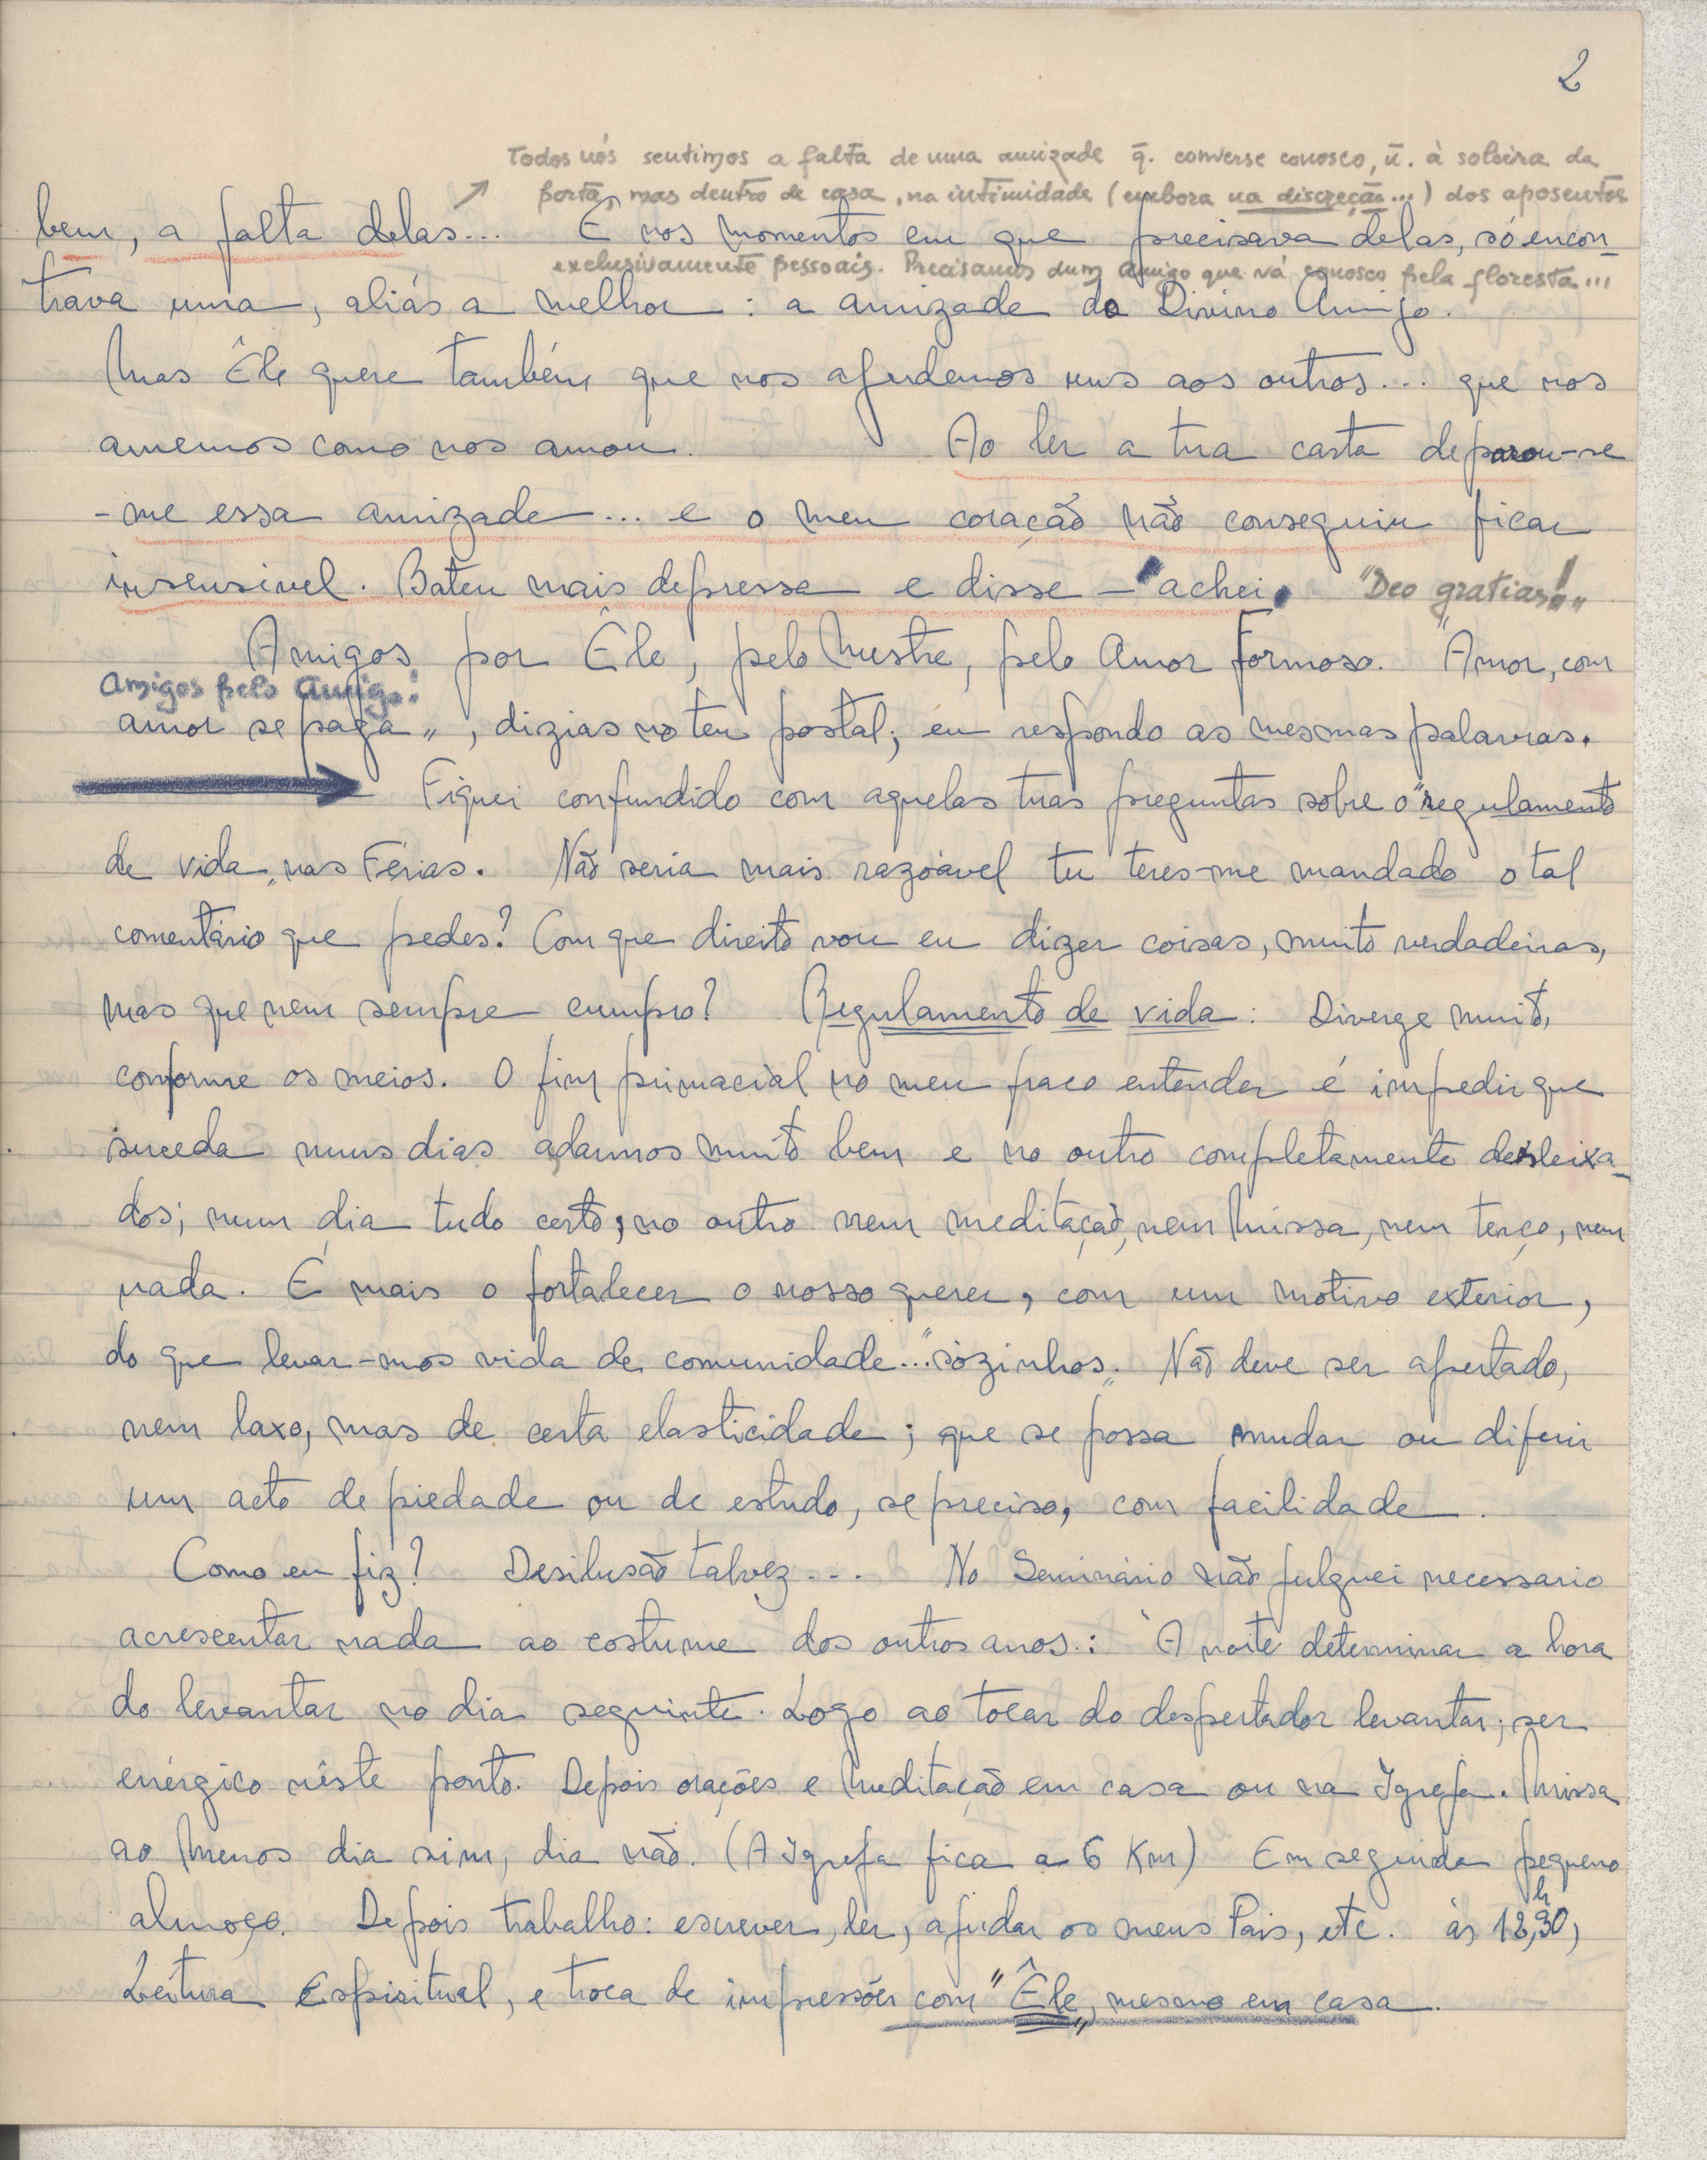 2
Todos nós sentimos a falta de uma amizade q̃. converse conosco, ñ. à soleira da
porta, mas dentro de casa, na intimidade (embora na discreção...) dos aposentos
bem, a falta delas... E nos momentos em que precisava delas, só encon-
exclusivamente pessoais. Precisamos dum Amigo que vá conosco pela floresta...
trava uma, aliás a melhor : a amizade do Divino Amigo.
Mas Êle quere também que nos ajudemos uns aos outros... que nos
amemos como nos amou. Ao ler a tua carta deparou-se
-me essa amizade... e o meu coração não conseguiu ficar
insensível. Bateu mais depressa e disse — achei. "Deo gratias!„
Amigos por Êle, pelo Mestre, pelo Amor Formoso. "Amor, com
Amigos pelo Amigo!
amor se paga„, dizias no teu postal; eu respondo as mesmas palavras.
Fiquei confundido com aquelas tuas preguntas sobre o "regulamento
de vida„ nas Férias. Não seria mais razoável tu teres-me mandado o tal
comentário que pedes? Com que direito vou eu dizer coisas, muito verdadeiras,
mas que nem sempre cumpro? Regulamento de vida: Diverge muito,
conforme os meios. O fim primacial no meu fraco entender é impedir que
suceda nuns dias adarmos muito bem e no outro completamente desleixa-
dos; num dia tudo certo, no outro nem meditação, nem Missa, nem terço, nem
nada. É mais o fortalecer o nosso querer, com um motivo exterior,
do que levar-mos vida de comunidade... "sòzinhos„. Não deve ser apertado,
nem laxo, mas de certa elasticidade; que se possa mudar ou diferir
um acto de piedade ou de estudo, se preciso, com facilidade.
Como eu fiz? Desilusão talvez... No Seminário não julguei necessario
acrescentar nada ao costume dos outros anos: À noite determinar a hora
do levantar no dia seguinte. Logo ao tocar do despertador levantar; ser
enérgico nêste ponto. Depois orações e Meditação em casa ou na Igreja. Missa
ao menos dia sim, dia não. (A igreja fica a 6 Km) Em seguida pequeno
almoço. Depois trabalho: escrever, ler, ajudar os meus Pais, etc. às 12,30h,
Leitura Espiritual, e troca de impressões com "Êle„, mesmo em casa.